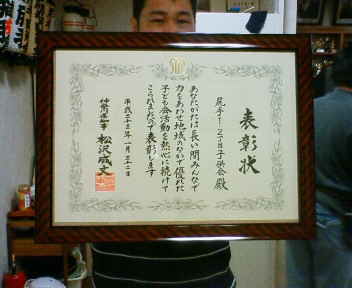 表彰状
尻手1・2丁目子供会殿
あなたがたは長い間みんなで
力をあわせ地域のなかで優れた
子ども会活動を熱心に続けて
こられましたので表彰します
平成二十三年一月二十二日
神奈川県知事 松沢成文